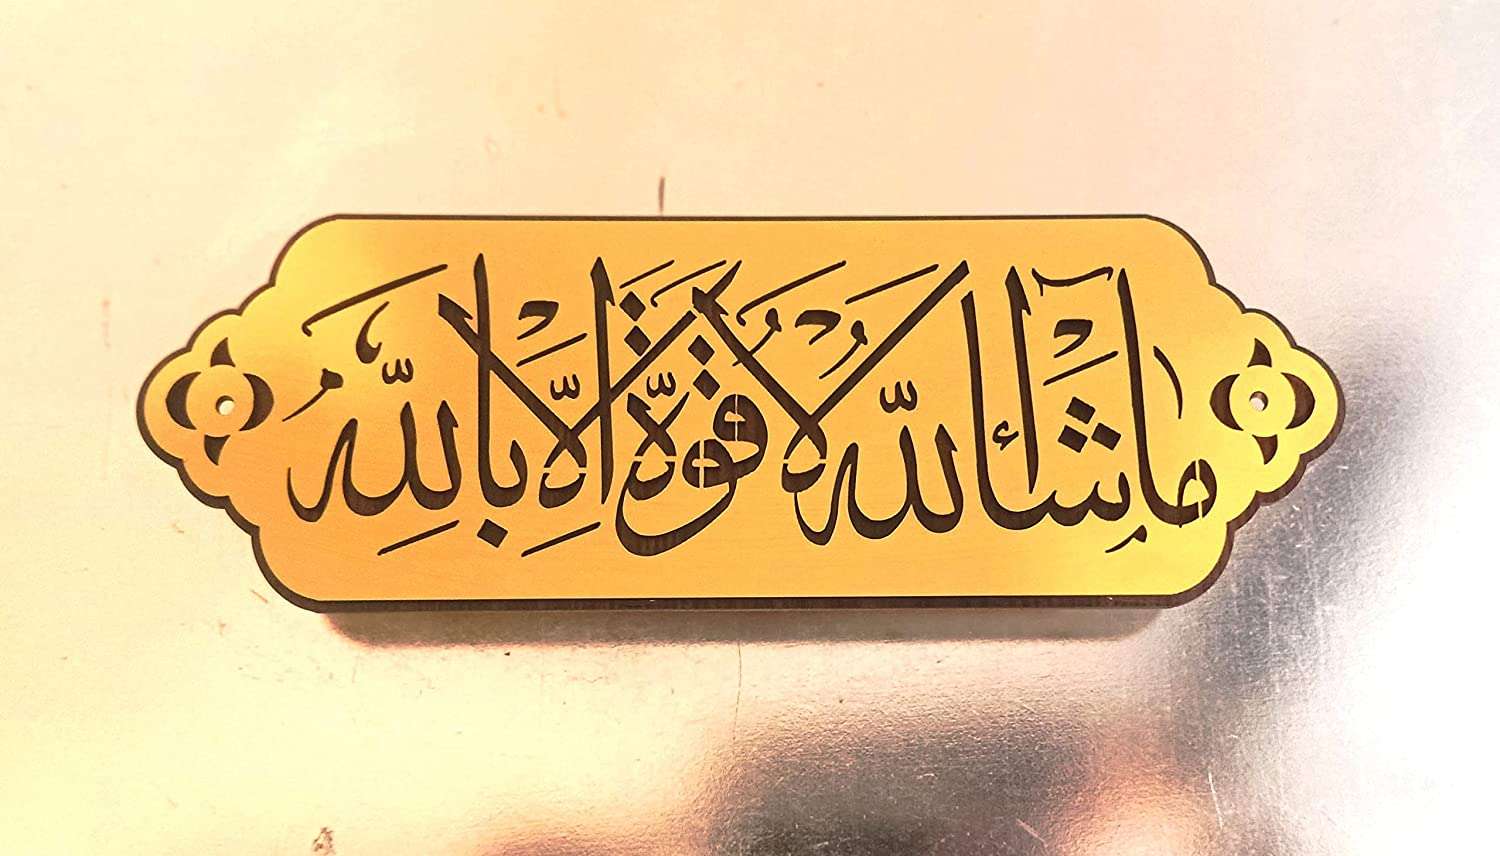 ماشأالله لا قوة الا بالله